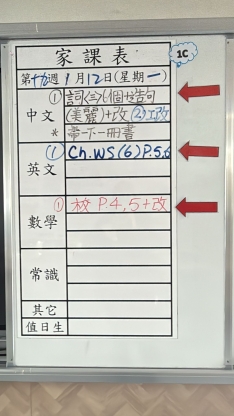 1C
家課表
第十九週 1月12日(星期一)
中文
① 詞(三)1個+造句
(美麗)+改 ②工改
*帶一下一冊書
英文
① Ch.WS(6)P.5,6
數學
① 校 P.4,5+改
常識
其它
值日生